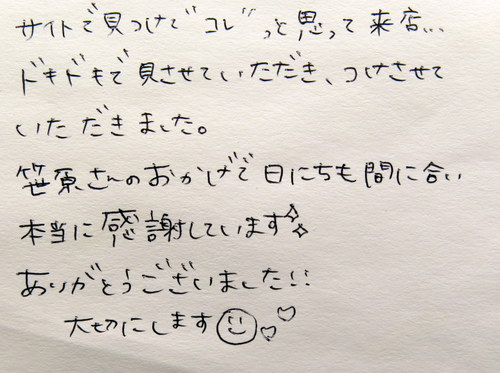 サイトで見つけて"コレ"っと思って来店…
ドキドキで見させていただき、つけさせて
いただきました。
笹原さんのおかげで日にちも間に合い
本当に感謝しています
ありがとうございました!!
大切にします